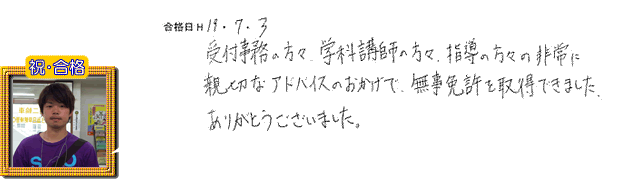 合格日H 19.7.3
受付事務の方々、学科講師の方々、指導の方々の非常に
親切なアドバイスのおかげで、無事免許を取得できました。
ありがとうございました。
祝・合格